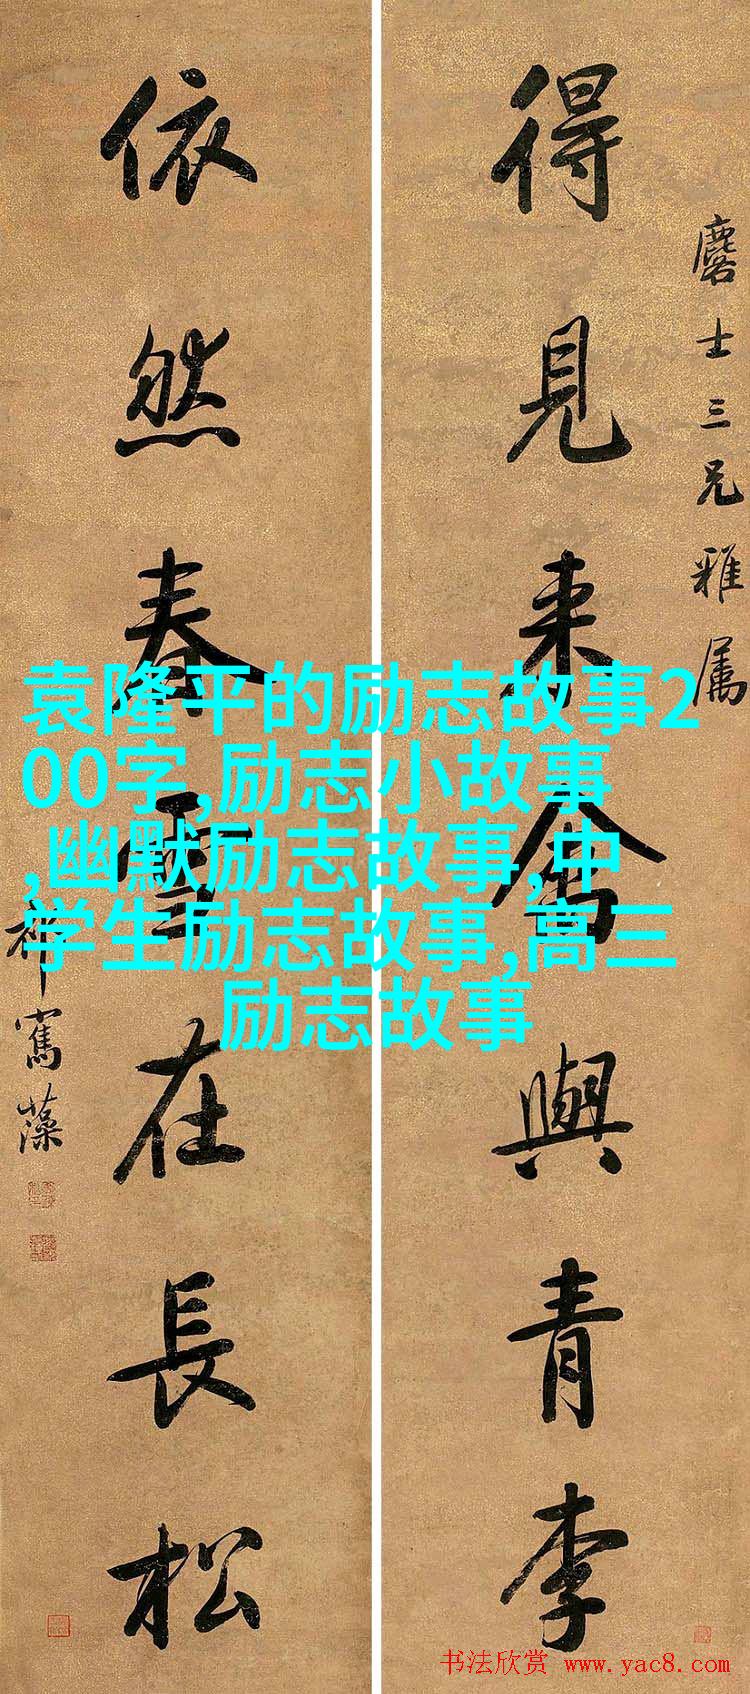 麐士三兄雅属
得見来禽與青李
依然春雪在長松
祁寯藻
袁隆平的励志故事2
00字,励志小故事
,幽默励志故事,中
学生励志故事,高三
励志故事
书法欣赏 www.yac8.com